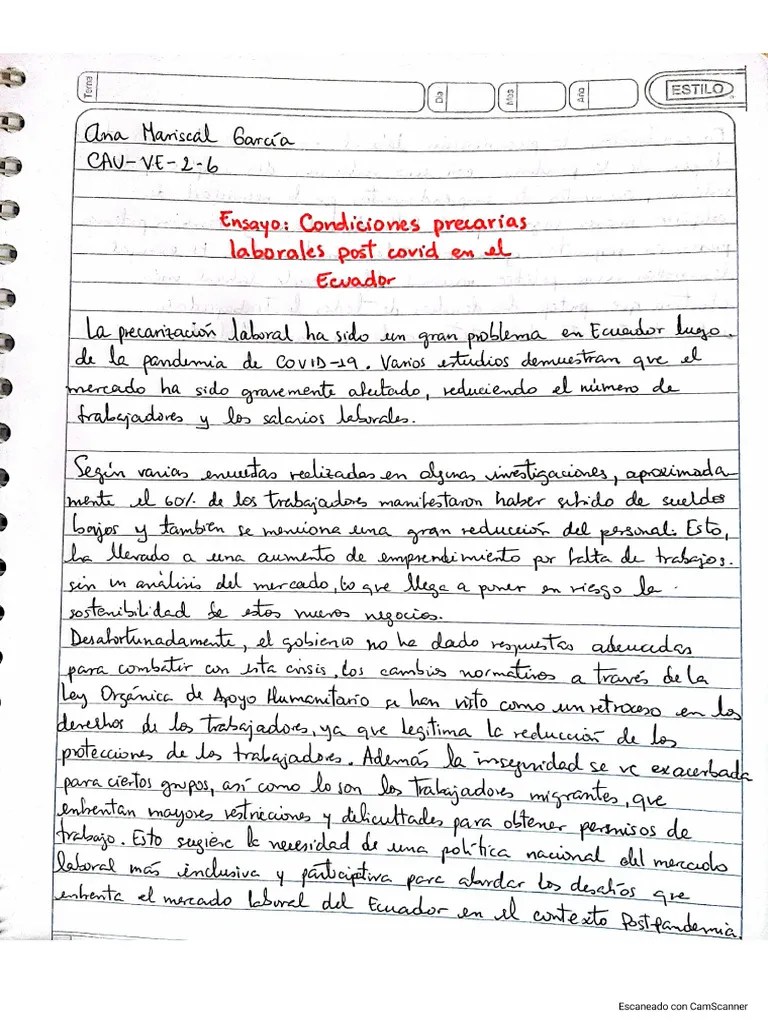 Tema
Día
Mes
Año
ESTILO
Ana Mariscal García
CAU-VE-2-6
Ensayo: Condiciones precarias
laborales post covid en el
Ecuador
La precarización laboral ha sido un gran problema en Ecuador luego
de la pandemia de COVID-19. Varios estudios demuestran que el
mercado ha sido gravemente afectado, reduciendo el número de
trabajadores y los salarios laborales.
Según varias encuestas realizadas en algunas investigaciones, aproximada
mente el 60% de los trabajadores manifestaron haber sufrido de sueldos
bajos y tambien se menciona una gran reducción del personal. Esto,
ha llevado a una aumento de emprendimiento por falta de trabajos.
sin un análisis del mercado, lo que llega a poner en riesgo la
sostenibilidad de estos nuevos negocios.
Desafortunadamente, el gobierno no ha dado respuestas adecuadas
para combatir con esta crisis, los cambios normativos a través de la
Ley Orgánica de Apoyo Humanitario se han visto como un retroceso en los
derechos de los trabajadores, ya que legitima la reducción de los
protecciones de los trabajadores. Además la inseguridad se ve exacerbada
para ciertos grupos, así como lo son los trabajadores migrantes, que
enfrentan mayores restricciones y dificultades para obtener permisos de
trabajo. Esto sugiere la necesidad de una política nacional del mercado
laboral más inclusiva y participtiva para abordar los desafíos que
enfrenta el mercado laboral del Ecuador en el contexto Postpandemia.
Escaneado con CamScanner